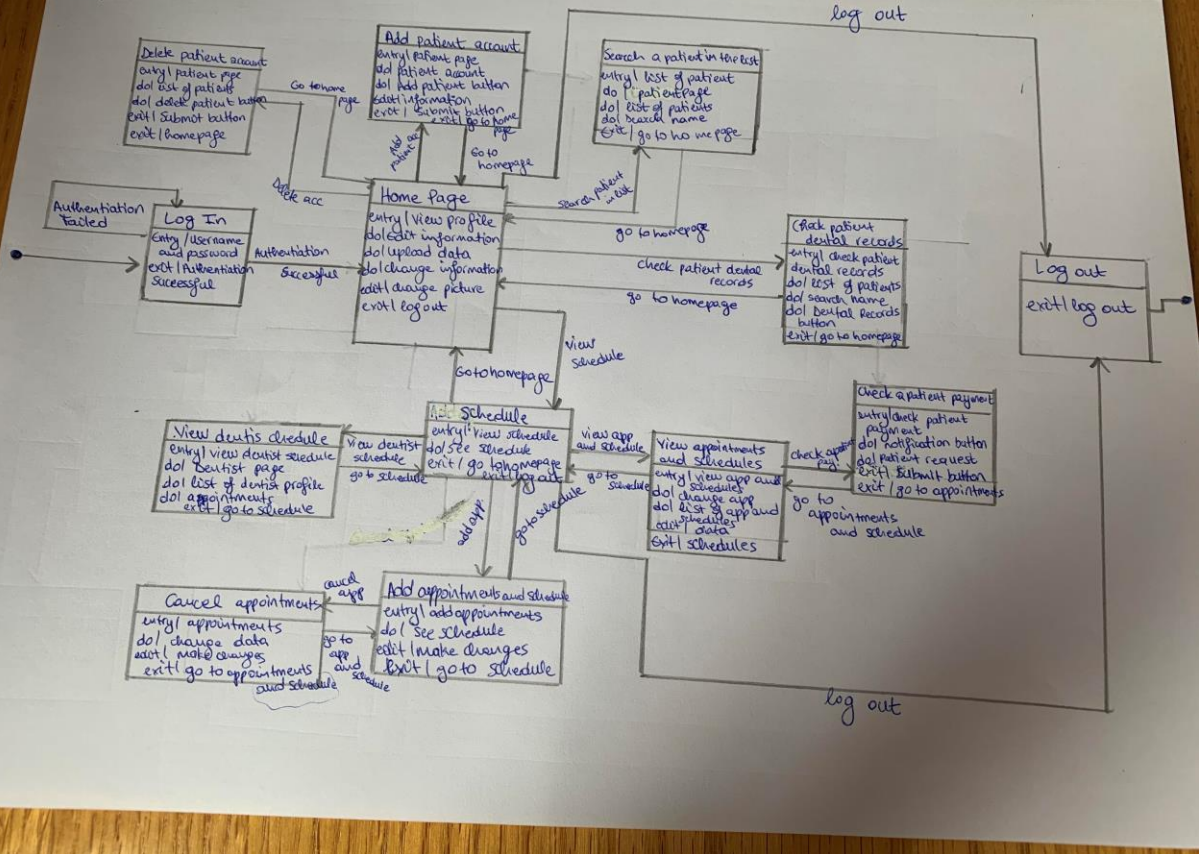 log out
Delete patient account
entry/ patient page
do/ list of patients
do/ delete patient button
exit/ Submit button
exit/ homepage
Go to home
page
Add patient account
entry/ patient page
do/ patient account
do/ Add patient button
edit/ information
exit/ Submit button
exit/ go to home
page
Search a patient in the list
entry/ list of patient
do/ patient page
do/ list of patients
do/ search name
exit/ go to home page
Add
patient acc
Go to
homepage
Delete acc
search patient
in list
go to homepage
Authentication
Failed
Log In
Entry/username
and password
exit/Authentiation
Successful
Authentiation
Successful
Home Page
entry/ view profile
do/edit information
do/upload data
do/change information
edit/ change picture
exit/ log out
Check patient dental
records
go to homepage
Check patient
dental records
entry/ check patient
dental records
do/ list of patients
do/ search name
do/ Dental Records
button
exit/ go to homepage
Log out
exit/ log out
View
schedule
Go to homepage
Schedule
entry/ view schedule
do/ see schedule
exit/ go to homepage
exit/ log out
View dentis chedule
entry/ view dentist schedule
do/ Dentist page
do/ list of dentist profile
do/ appointments
exit/ go to schedule
view dentist
schedule
go to schedule
view app
and schedule
go to
schedule
View appointments
and schedules
entry/ view app and
schedules
do/ change app
do/ list of app and
schedules
edit/ data
Exit/ schedules
check app
pay.
go to
appointments
and schedule
Check a patient payment
entry/check patient
payment
do/ notification button
do/ patient request
exit/ Submit button
exit/ go to appointments
add app
go to schedule
Cancel appointments
entry/ appointments
do/ change data
edit/ make changes
exit/ go to appointments
and schedule
cancel
app
go to
app
and
schedule
Add appointments and schedule
entry/ add appointments
do/ see schedule
edit/ make changes
Exit/ go to schedule
log out